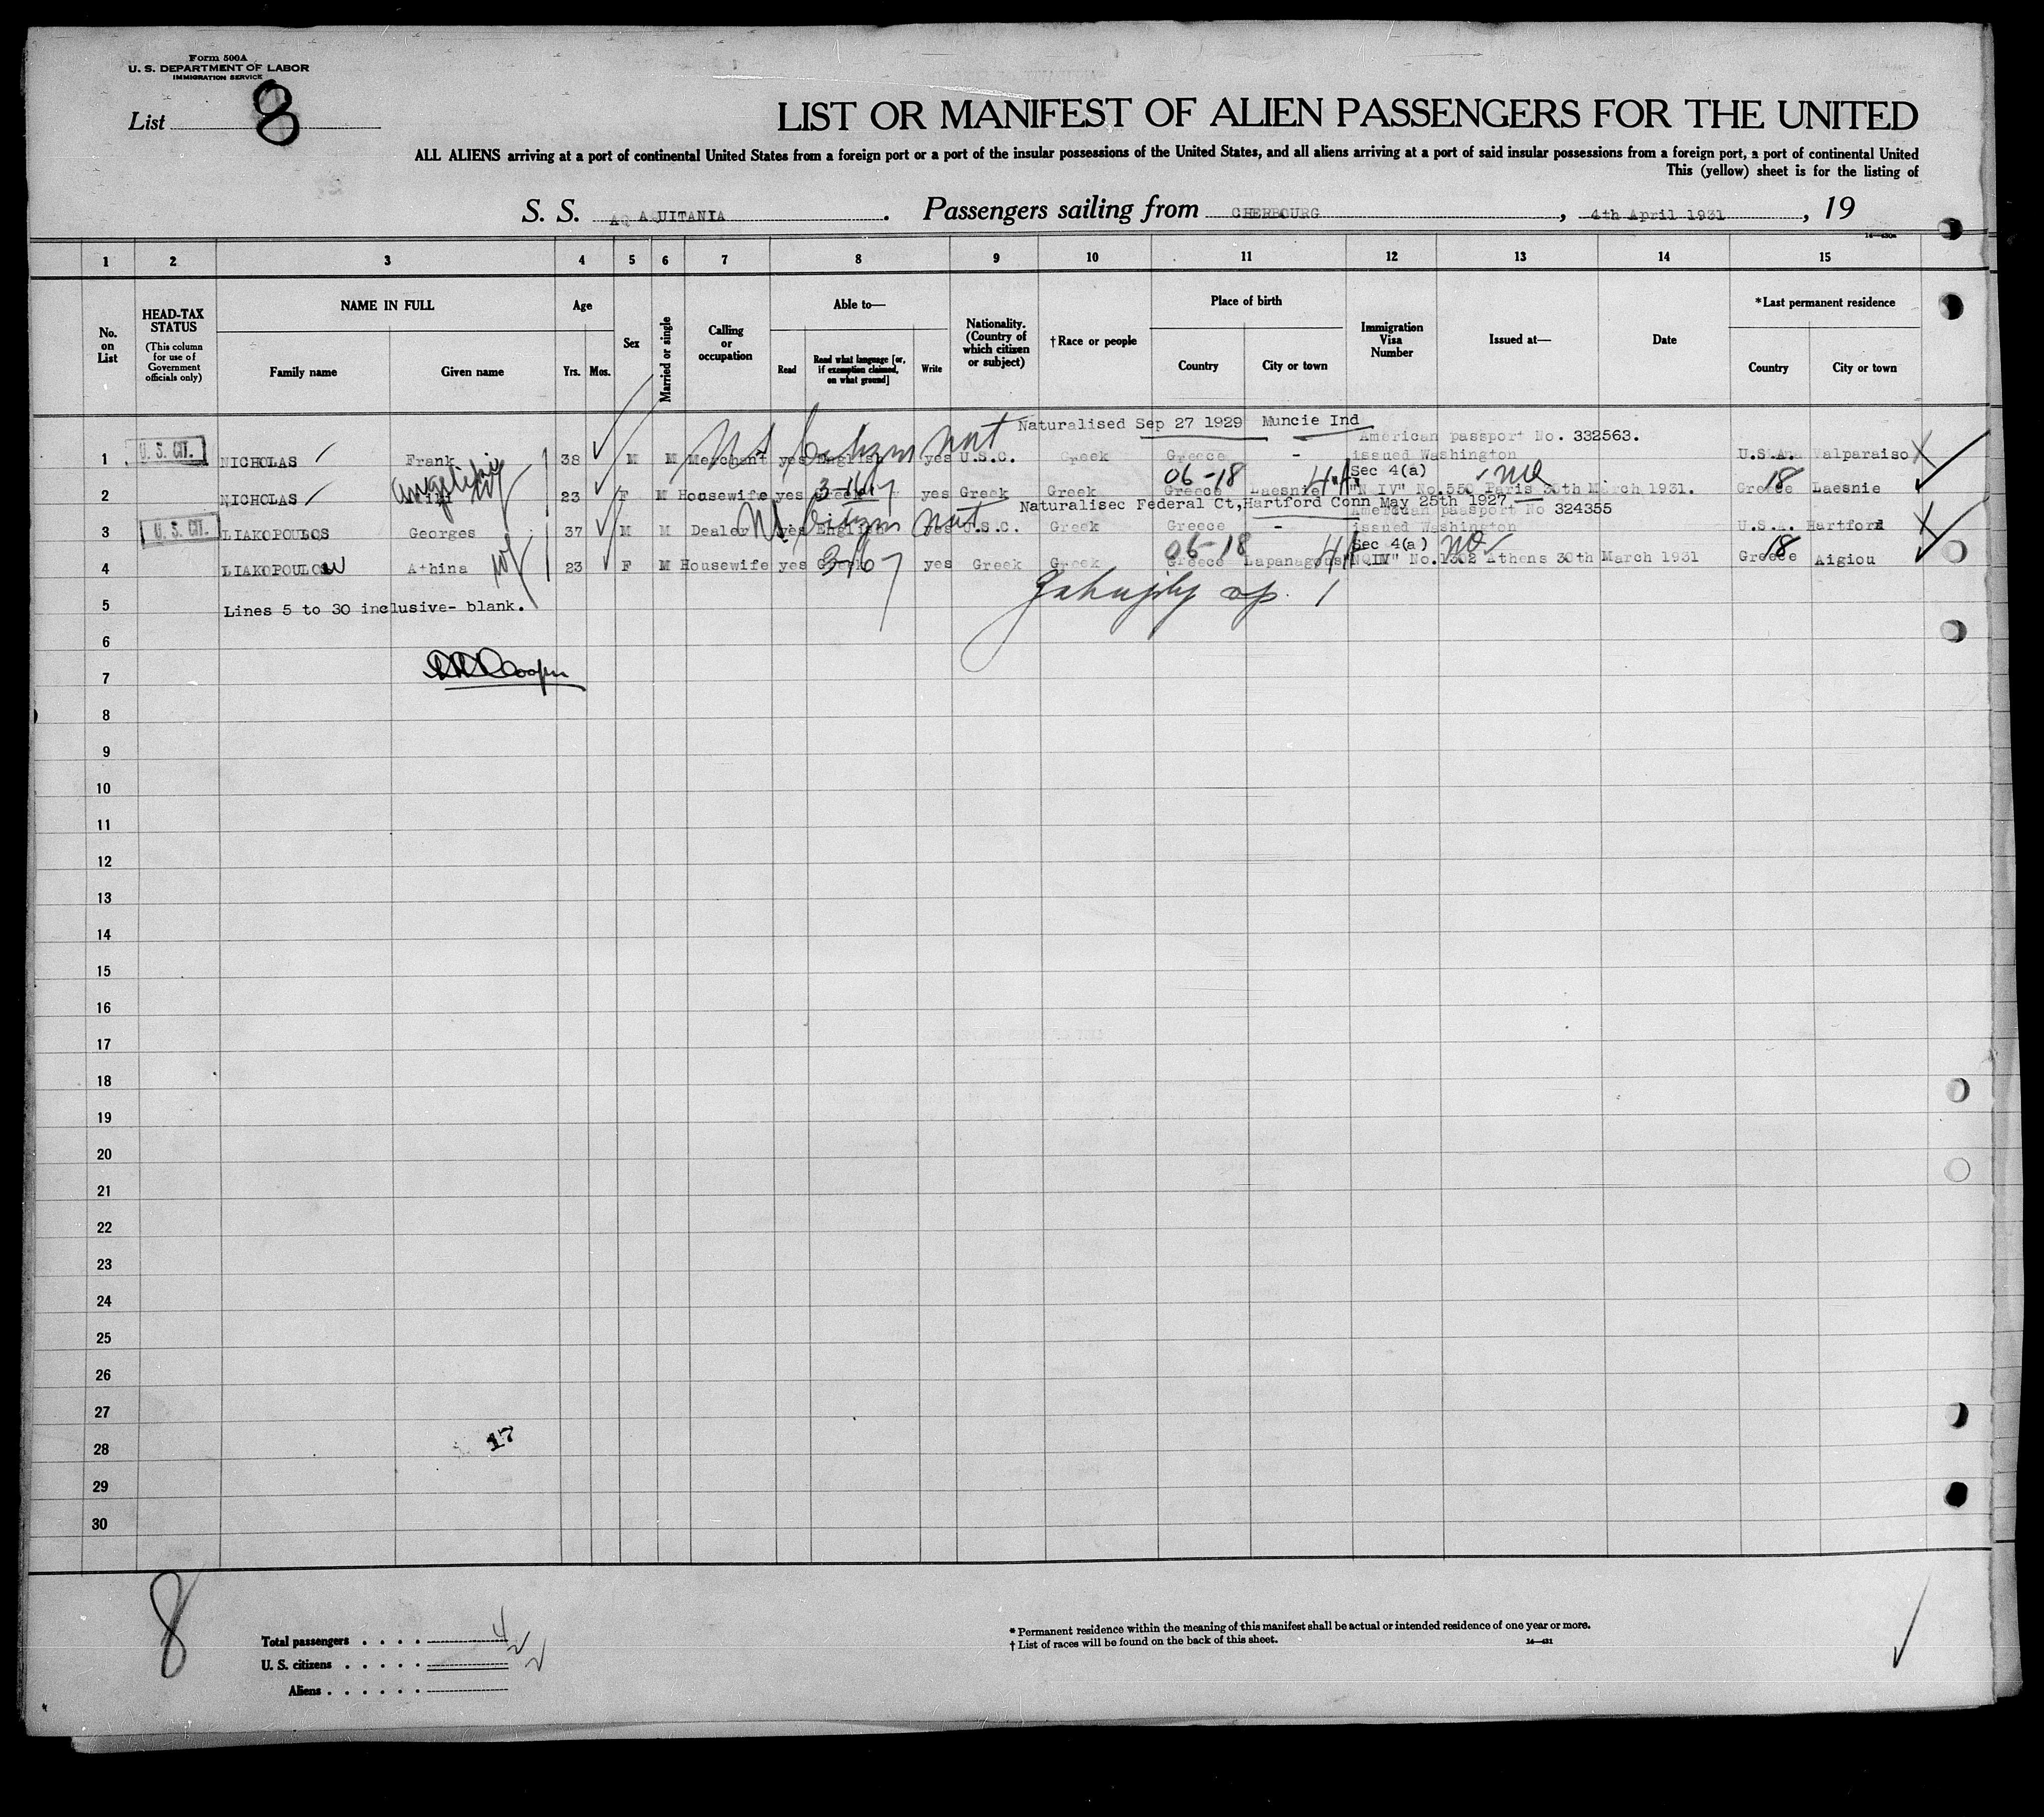 Form 500A
U. S. DEPARTMENT OF LABOR
IMMIGRATION SERVICE
List 8
LIST OR MANIFEST OF ALIEN PASSENGERS FOR THE UNITED
ALL ALIENS arriving at a port of continental United States from a foreign port or a port of the insular possessions of the United States, and all aliens arriving at a port of said insular possessions from a foreign port, a port of continental United
This (yellow) sheet is for the listing of
S. S. AQ AQUITANIA . Passengers sailing from CHERBOURG , 4th April 1931 , 19
1 2 3 4 5 6 7 8 9 10 11 12 13 14 15
No. on List
HEAD-TAX STATUS
(This column for use of Government officials only)
NAME IN FULL
Family name Given name
Age
Yrs. Mos.
Sex
Married or single
Calling or occupation
Able to—
Read
Read what language [or, if exemption claimed, on what ground]
Write
Nationality. (Country of which citizen or subject)
†Race or people
Place of birth
Country City or town
Immigration Visa Number
Issued at—
Date
*Last permanent residence
Country City or town
Naturalised Sep 27 1929 Muncie Ind
American passport No. 332563.
1 U. S. CIT. NICHOLAS Frank 38 M M Merchant yes English yes U.S.C. Greek Greece - issued Washington U.S.A. Valparaiso
06-18 Sec 4(a)
2 NICHOLAS Angeliki 23 F M Housewife yes yes Greek Greek Greece Laesnie "N IV" No. 550 Paris 30th March 1931. Greece Laesnie
3-16 18
Naturalisec Federal Ct, Hartford Conn May 25th 1927
American passport No 324355
3 U. S. CIT. LIAKOPOULOS Georges 37 M M Dealer yes English yes U.S.C. Greek Greece - issued Washington U.S.A. Hartford
06-18 Sec 4(a)
4 LIAKOPOULOU Athina 23 F M Housewife yes Greek yes Greek Greek Greece "NQIV" No. 1302 Athens 30th March 1931 Greece Aigiou
3-16 18
5 Lines 5 to 30 inclusive- blank.
6
7 Cooper
8
9
10
11
12
13
14
15
16
17
18
19
20
21
22
23
24
25
26
27
28 17
29
30
8
Total passengers . . . . 4
U. S. citizens . . . . . 2
Aliens . . . . . . 2
* Permanent residence within the meaning of this manifest shall be actual or intended residence of one year or more.
† List of races will be found on the back of this sheet. 14—431